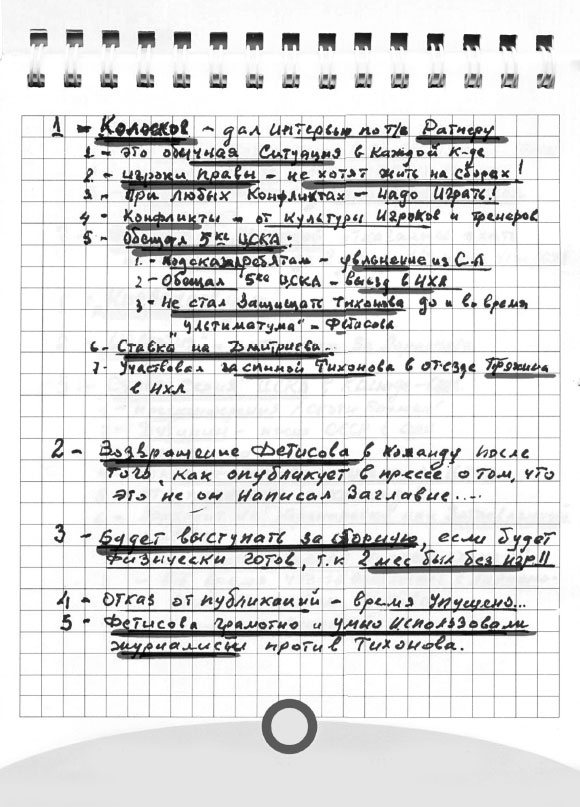 1 - Колосков - дал интервью по т/в Ратнеру
1 - Это обычная ситуация в каждой к-де
2 - игроки правы - не хотят жить на сборах!
3 - При любых конфликтах - надо играть!
4 - Конфликты - от культуры игроков и тренеров
5 - Обещал 5ке ЦСКА:
1 - подсказал ребятам - увольнение из С.А
2 - Обещал 5ке ЦСКА - выезд в НХЛ
3 - Не стал защищать Тихонова до и во время
"ультиматума" - Фетисова
6 - Ставка на Дмитриева.
7 - Участвовал за спиной Тихонова в отъезде Пряхина
в НХЛ
2 - Возвращение Фетисова в команду после
того, как опубликует в прессе о том, что
это не он написал заглавие....
3 - Будет выступать за сборную, если будет
физически готов, т.к 2 мес был без игр!!
4 - Отказ от публикаций - время упущено...
5 - Фетисова грамотно и умно использовали
журналисты против Тихонова.